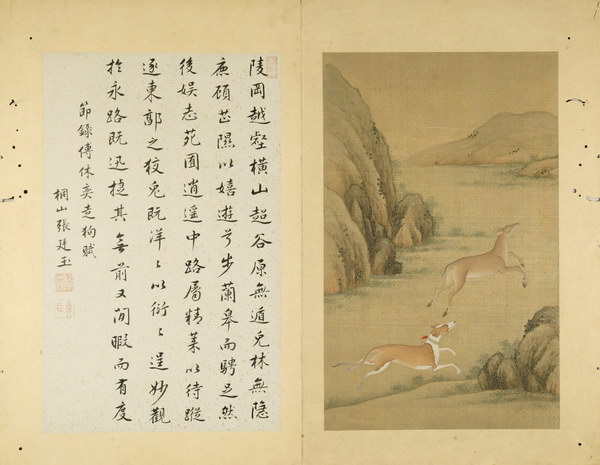 陵岡越壑橫山超谷原無遁兔林無隐
鹿顧芷隰以嬉遊兮步蘭皋而騁足然
後娛志苑囿逍遥中路屬精萊以待蹤
逐東郭之狡兔既洋〻以衍〻逞妙觀
扵永路既迅捷其無前又閒暇而有度
節錄傅休奕走狗賦
桐山張廷玉